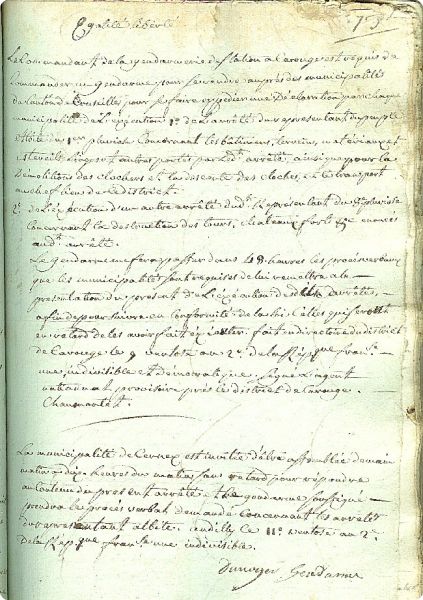 Egalité liberté
Le Commandant de la gendarmerie de station a Carouge est requis de
Commander un gendarme pour se rendre auprès des municipalités
du Canton de Cruseilles pour se faire expedier une Declaration par chaque
municipalité de l'execution 1° de l'arrêté du representant du peuple
Albitte du 1er pluviose Concernant les bâtimens, terreins, materiaux et
ustensils audit arrêté, ainsi que pour la
démolition des Clochers et la descente des Cloches, et le transport
au chef lieu de ce district.
2° de l'execution d'un autre arrêté dudt Representant du pluviose
Concernant la destruction des tours, chateaux fort &c enoncés
audt arrêté.
Le gendarme fera passer dans 48 heures les procès verbaux
que les municipalités sont requises de lui remettre a la
presentation du present de l'execution desdits arrêtés,
afin de poursuivre en Conformité de la loi Celles qui seront
en retard de les avoir fait executer. fait en directoire du district
de Carouge le 9 ventose an 2e de la Rep.que fran.se
une, indivisible et Democratique. signé L'agent
national provisoire près le district de Carouge.
La municipalité de Cernex est invitée d'être assemblée demain
matin a dix heures du matin sans retard pour repondre
au Contenu du present arrêté et le gendarme soussigné
prendra le procès verbal demandé Concernant les arrêtés
du representant albitte. andilly ce 11e ventose an 2e
De la Rep.que fran.se une indivisible.
Gendarme